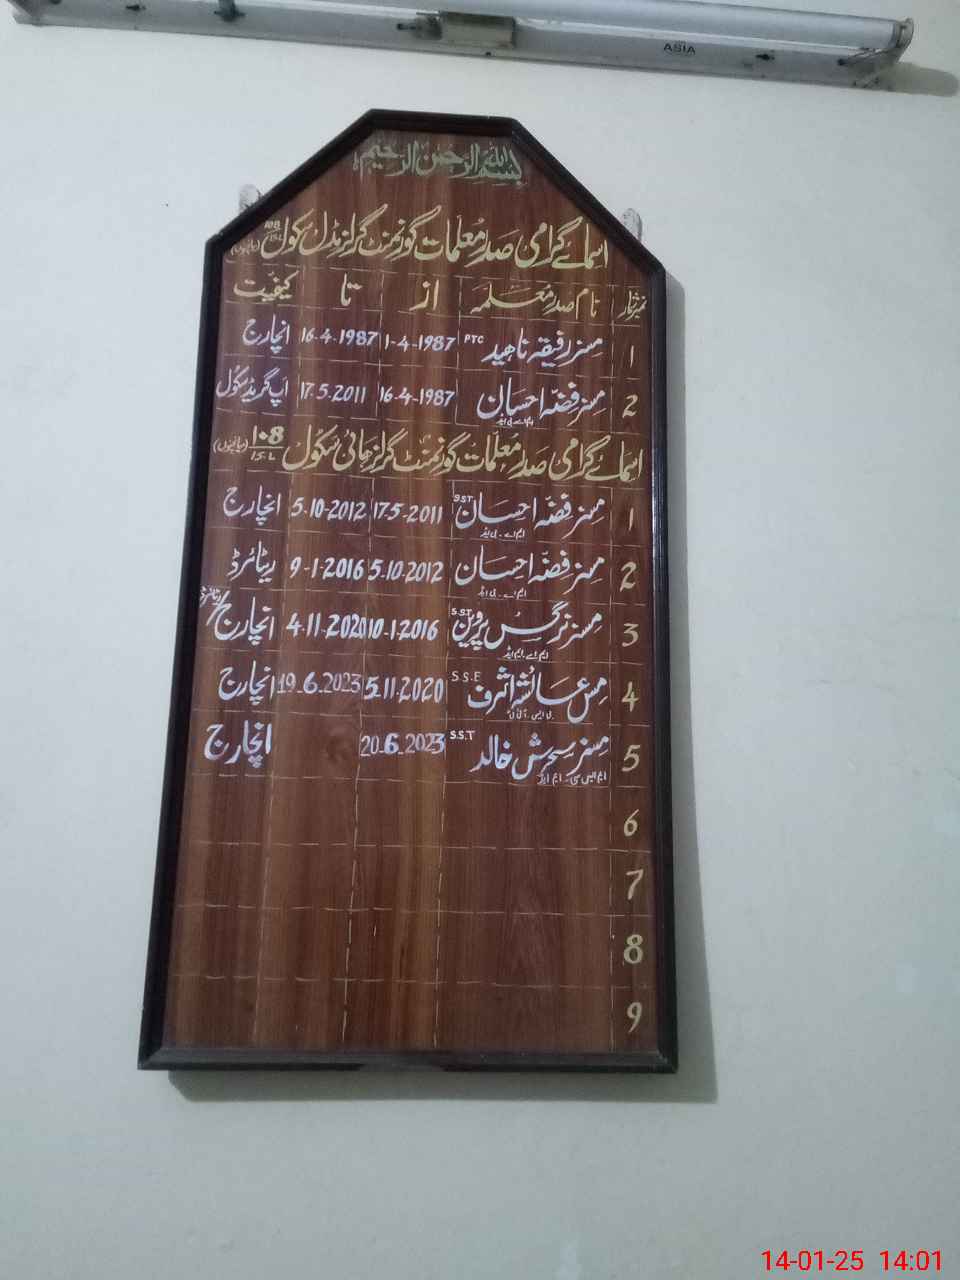 ASIA
بسم اللہ الرحمن الرحیم
اسمائے گرامی صدر معلمات گورنمنٹ گرلز مڈل سکول 108/15.L (میانچنوں)
نمبر شمار نام صدر معلمہ از تا کیفیت
1 مسز رفیقہ ناھید PTC 1-4-1987 16-4-1987 انچارج
2 مسز فضّہ احسان 16-4-1987 17.5.2011 اپ گریڈ سکول
ایم اے بی ایڈ
اسمائے گرامی صدر معلّمات گورنمنٹ گرلز ہائی سکول 108/15.L (میانچنوں)
1 مسز فضّہ احسان S.S.T 17.5-2011 5.10-2012 انچارج
ایم اے۔ بی ایڈ
2 مسز فضّہ احسان 5.10.2012 9-1-2016 ریٹائرڈ
ایم اے۔ بی ایڈ
3 مسز نرگس پروین S.S.T 10.1.2016 4.11.2020 انچارج/ریٹائرڈ
ایم اے۔ ایم ایڈ
4 مس عائشہ اشرف S.S.E 5.11.2020 19_6_2023 انچارج
5 مسز سحرش خالد S.S.T 20-6-2023 انچارج
ایم ایس سی۔ ایم ایڈ
6
7
8
9
14-01-25 14:01